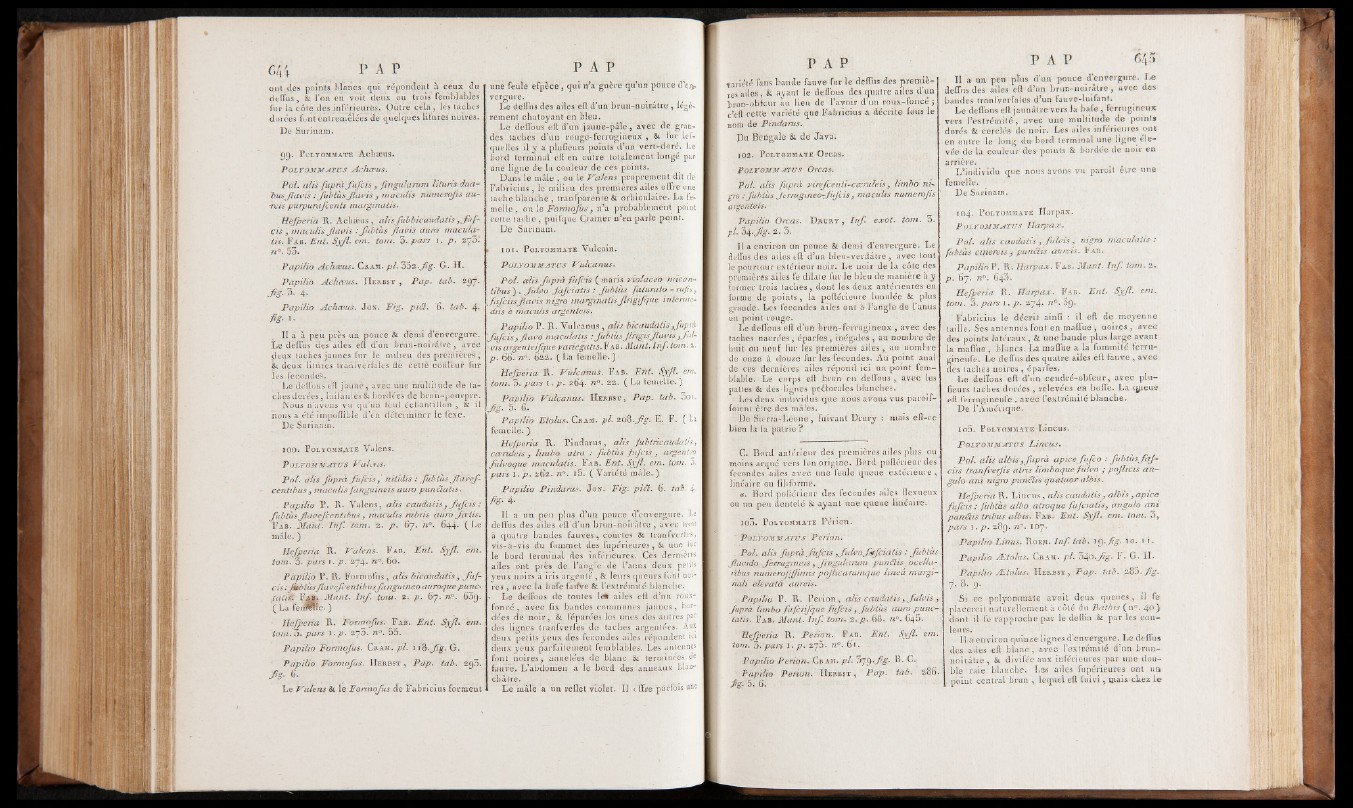 644 P A P
ont des points blancs qui répondent à ceux du
deſſus, & l'on en voit deux ou trois ſemblables
ſur la côte des inférieures. Outre cela, les taches
dorées ſont entremêlées de quelques litures noires.
De Surinam.
99. POLYOMMATE Achœus.
POLYOMMATUS Achœus.
Pol. alis ſuprà fuſcis, ſingularum liturâ dua-
bus flavis : ſubtùs flavis, maculis numeroſis au-
reis purpureſcenti marginatis.
Heſperia R. Achœus, alis ſubbicaudatis, fuſ-
cis, maculis flavis : ſubtùs flavis auro macula-
tis. FAB. Ent. Syſt. em. tom. 3. pars 1. p. 273.
n°. 53.
Papilio Achœus. CRAM. pl. 332. fig. G. H.
Papilio Achœus. HERBST, Pap. tab. 297.
fig. 3. 4.
Papilio Achœus. JON. Fig. pict. 6. tab. 4.
fig. 1.
Il a à peu près un pouce & demi d'envergure.
Le deſſus des ailes eſt d'un brun-noirâtre, avec
deux taches jaunes ſur le milieu des premières,
& deux litures tranſverſales de cette couleur ſur
les ſecondes.
Le deſſous eſt jaune, avec une multitude de ta-
ches dorées, luiſantes & bordées de brun-pourpre.
Nous n'avons vu qu'un ſeul échantillon, & il
nous a été impoſſible d'en déterminer le ſexe.
De Surinam.
100. POLYOMMATE Valens.
POLYOMMATUS Valens.
Pol. alis ſuprà fuſcis, nitidis : ſubtùs flaveſ-
centibus, maculis ſanguineis auro punctatis.
Papilio P. R. Valens, alis caudatis, fuſcis :
ſubtùs flaveſcentibus, maculis rubris auro fœtis.
FAB. Mant. Inſ. tom. 2. p. 67. n°. 644. (Le
mâle.)
Heſperia R. Valens. FAB. Ent. Syſt. em.
tom. 3. pars 1. p. 274. n°. 60.
Papilio P. R. Formoſus, alis bicaudatis, fuſ-
cis : ſubtùs flaveſcentibus ſanguineo atroque punc-
tatis. FAB. Mant. Inſ. tom. 2. p. 67. n°. 639.
(La femelle.)
Heſperia R. Formoſus. FAB. Ent. Syſt. em.
tom. 3. pars 1. p. 273. n°. 55.
Papilio Formoſus. CRAM. pl. 118. fig. G.
Papilio Formoſus. HERBST, Pap. tab. 293.
fig. 6.
Le Valens & le Formoſus de Fabricius forment
P A P
une ſeule eſpèce, qui n'a guère qu'un pouce d'en-
vergure.
Le deſſus des ailes eſt d'un brun-noirâtre, légè-
rement chatoyant en bleu.
Le deſſous eſt d'un jaune-pâle, avec de gran-
des taches d'un rouge-ferrugineux, & ſur leſ-
quelles il y a pluſieurs points d'un vert-doré. Le
bord terminal eſt en outre totalement longé par
une ligne de la couleur de ces points.
Dans le mâle, ou le Valens proprement dit de
Fabricius, le milieu des premières ailes offre une
tache blanche, tranſparente & orbiculaire. La fe-
melle, ou le Formoſus, n'a probablement point
cette tache, puiſque Cramer n'en parle point.
De Surinam.
101. POLYOMMATE Vulcain.
POLYOMMATUS Vulcanus.
Pol. alis ſuprà fuſcis (maris violaceo mican-
tibus), fulvo faſciatis : ſubtùs ſaturato-rufis,
faſciis flavis nigro marginatis ſtrigiſque interme-
diis è maculis argenteis.
Papilio P. R. Vulcanus, alis bicaudatis, ſuprà
fuſcis, flavo maculatis : ſubtùs ſtrigis flavis, ful-
vis argentiſque variegatis. FAB. Mant. Inſ. tom. 2.
p. 66. n°. 622. (La femelle.)
Heſperia R. Vulcanus. FAB. Ent. Syſt. em.
tom. 3. pars 1. p. 264. n°. 22. (La femelle.)
Papilio Vulcanus. HERBST, Pap. tab. 301.
fig. 5. 6.
Papilio Etolus. CRAM. pl. 208. fig. E. F. (La
femelle.)
Heſperia R. Pindarus, alis ſubtricaudatis,
cœruleis, limbo atro : ſubtùs fuſcis, argenteo
fulvoque maculatis. FAB. Ent. Syſt. em. tom. 3.
pars 1. p. 262. n°. 15. (Variété mâle.)
Papilio Pindarus. JON. Fig. pict. 6. tab. 4.
fig. 4.
Il a un peu plus d'un pouce d'envergure. Le
deſſus des ailes eſt d'un brun-noirâtre, avec trois
à quatre bandes fauves, courtes & tranſverſes,
vis-à-vis du ſommet des ſupérieures, & une ſur
le bord terminal des inférieures. Ces dernières
ailes ont près de l'angle de l'anus deux petits
yeux noirs à iris argenté, & leurs queues ſont noi-
res, avec la baſe fauve & l'extrémité blanche.
Le deſſous de toutes les ailes eſt d'un roux-
foncé, avec ſix bandes communes jaunes, bor-
dées de noir, & ſéparées les unes des autres par
des lignes tranſverſes de taches argentées. Aux
deux petits yeux des ſecondes ailes répondent ici
deux yeux parfaitement ſemblables. Les antennes
ſont noires, annelées de blanc & terminées de
fauve. L'abdomen a le bord des anneaux blan-
châtre.
Le mâle a un reflet violet. Il offre parfois une
P A P
variété ſans bande fauve ſur le deſſus des premiè-
res ailes, & ayant le deſſous des quatre ailes d'un
brun-obſcur au lieu de l'avoir d'un roux-foncé ;
c'eſt cette variété que Fabricius a décrite ſous le
nom de Pindarus.
Du Bengale & de Java.
102. POLYOMMATE Orcas.
POLYOMMATUS Orcas.
Pol. alis ſuprà vireſcenti-cœruleis, limbo ni-
gro : ſubtùs ferrugineo-fuſcis, maculis numeroſis
argenteis.
Papilio Orcas. DRURY, Inſ. exot. tom. 3.
pl. 34. fig. 2. 3.
Il a environ un pouce & demi d'envergure. Le
deſſus des ailes eſt d'un bleu-verdâtre, avec tout
le pourtour extérieur noir. Le noir de la côte des
premières ailes ſe dilate ſur le bleu de manière à y
former trois taches, dont les deux antérieures en
forme de points, la poſtérieure lunulée & plus
grande. Les ſecondes ailes ont à l'angle de l'anus
un point rouge.
Le deſſous eſt d'un brun-ferrugineux, avec des
taches nacrées, éparſes, inégales, au nombre de
huit ou neuf ſur les premières ailes, au nombre
de onze à douze ſur les ſecondes. Au point anal
de ces dernières ailes répond ici un point ſem-
blable. Le corps eſt brun en deſſous, avec les
pattes & des lignes pectorales blanches.
Les deux individus que nous avons vus paroiſ-
ſoient être des mâles.
De Sierra-Leone, ſuivant Drury : mais eſt-ce
bien là ſa patrie ?
C. Bord antérieur des premières ailes plus ou
moins arqué vers ſon origine. Bord poſtérieur des
ſecondes ailes avec une ſeule queue extérieure,
linéaire ou filiforme.
a. Bord poſtérieur des ſecondes ailes flexueux
ou un peu dentelé & ayant une queue linéaire.
103. POLYOMMATE Périon.
POLYOMMATUS Perion.
Pol. alis ſuprà fuſcis, fulvo faſciatis : ſubtùs
flavido-ferrugineis, ſingularum punctis ocella-
ribus numeroſiſſimis poſticarumque lineâ margi-
nali elevatâ aureis.
Papilio P. R. Perion, alis caudatis, fulvis,
ſuprà limbo faſciiſque fuſcis, ſubtùs auro punc-
tatis. FAB. Mant. Inſ. tom. 2. p. 68. n°. 645.
Heſperia R. Perion. FAB. Ent. Syſt. em.
tom. 3. pars 1. p. 275. n°. 61.
Papilio Perion. CRAM. pl. 379. fig. B. C.
Papilio Perion. HERBST, Pap. tab. 286.
fig. 5. 6.
P A P 645
Il a un peu plus d'un pouce d'envergure. Le
deſſus des ailes eſt d'un brun-noirâtre, avec des
bandes tranſverſales d'un fauve-luiſant.
Le deſſous eſt jaunâtre vers la baſe, ferrugineux
vers l'extrémité, avec une multitude de points
dorés & cerclés de noir. Les ailes inférieures ont
en outre le long du bord terminal une ligne éle-
vée de la couleur des points & bordée de noir en
arrière.
L'individu que nous avons vu paroît être une
femelle.
De Surinam.
104. POLYOMMATE Harpax.
POLYOMMATUS Harpax.
Pol. alis caudatis, fulvis, nigro maculatis :
ſubtùs cinereis, punctis aureis. FAB.
Papilio P. R. Harpax. FAB. Mant. Inſ. tom. 2.
p. 67. n°. 643.
Heſperia R. Harpax. FAB. Ent. Syſt. em.
tom. 3. pars 1. p. 274. n°. 59.
Fabricius le décrit ainſi : il eſt de moyenne
taille. Ses antennes ſont en maſſue, noires, avec
des points latéraux, & une bande plus large avant
la maſſue, blancs. La maſſue a la ſommité ferru-
gineuſe. Le deſſus des quatre ailes eſt fauve, avec
des taches noires, éparſes.
Le deſſous eſt d'un cendré-obſcur, avec plu-
ſieurs taches dorées, relevées en boſſe. La queue
eſt ferrugineuſe, avec l'extrémité blanche.
De l'Amérique.
105. POLYOMMATE Lincus.
POLYOMMATUS Lincus.
Pol. alis albis, ſuprà apice fuſco : ſubtùs faſ-
ciis tranſverſis atris limboque fulvo ; poſticis an-
gulo ani nigro punctis quatuor albis.
Heſperia R. Lincus, alis caudatis, albis, apice
fuſcis : ſubtùs albo atroque faſciatis, angulo ani
punctis tribus albis. FAB. Ent. Syſt. em. tom. 3,
pars 1. p. 289. n°. 107.
Papilio Linus. ROEM. Inſ. tab. 19. fig. 10. 11.
Papilio Ætolus. CRAM. pl. 340. fig. F. G. H.
Papilio Ætolus. HERBST, Pap. tab. 283. fig.
7. 8. 9.
Si ce polyommate avoit deux queues, il ſe
placeroit naturellement à côté du Bathis (n°. 40)
dont il ſe rapproche par le deſſin & par les cou-
leurs.
Il a environ quinze lignes d'envergure. Le deſſus
des ailes eſt blanc, avec l'extrémité d'un brun-
noirâtre, & diviſée aux inférieures par une dou-
ble raie blanche. Les ailes ſupérieures ont un
point central brun, lequel eſt ſuivi, mais chez le